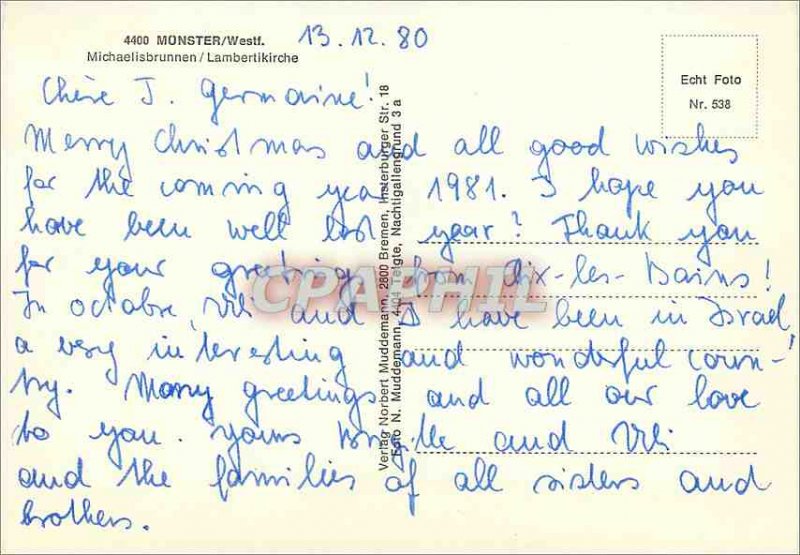 4400 MÜNSTER/Westf.
Michaelisbrunnen / Lambertikirche
13.12.80
Echt Foto
Nr. 538
Chère J. Germaine!
Merry Christmas and all good wishes
for the coming year 1981. I hope you
have been well last year? Thank you
for your greeting from Aix-les-Bains!
In octobre, Uli and I have been in Israel,
a very interesting and wonderful coun-
try. Many greetings and all our love
to you. yours Brigitte and Uli
and the families of all sisters and
brothers.
Verlag Norbert Muddemann, 2800 Bremen, Insterburger Str. 18
Foto N. Muddemann, 4404 Telgte, Nachtigallengrund 3 a
CPAPHIL